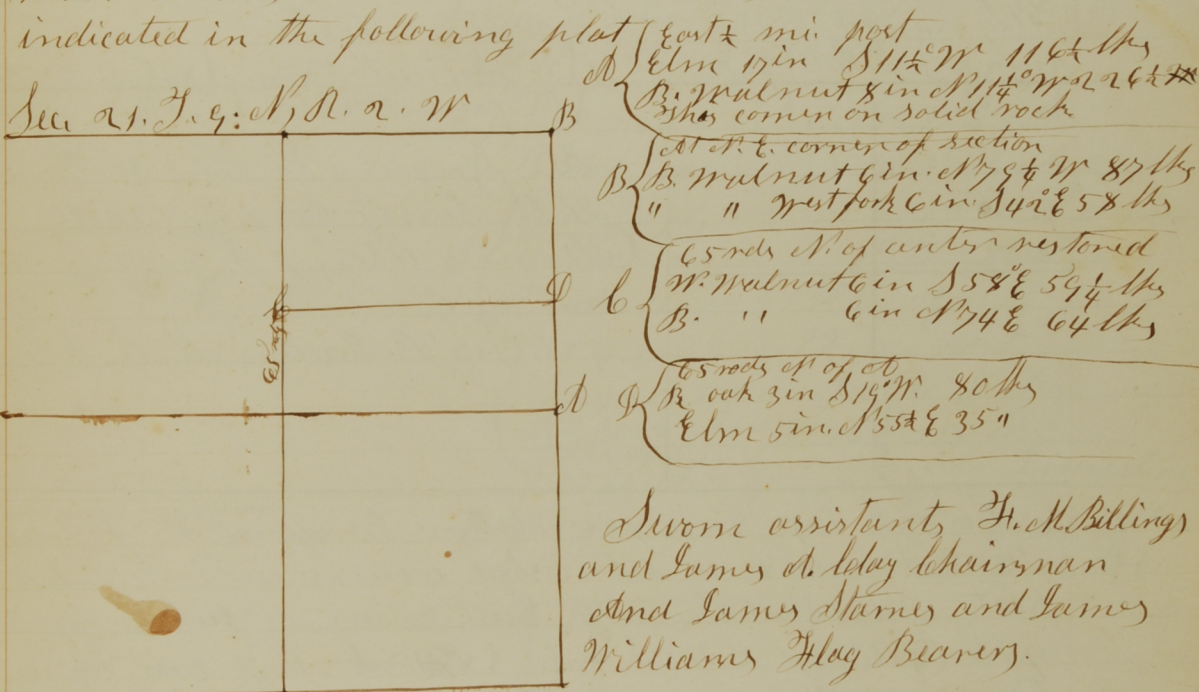 indicated in the following plat
Sec. 21. T. 9: N, R. 2. W
B
D
C
65 rds
A
A
East ¼ mi. post
Elm 17 in S 11½° W 116½ lks
B. Walnut 8 in N 11¼° W 226½
This corner on solid rock
B
At N. E. corner of section
B. Walnut 6 in. N 79¼ W 87 lks
" " West fork 6 in. S 42° E 58 lks
C
65 rds N. of center restored
W. Walnut 6 in S 58° E 59¼ lks
B. " 6 in N 74 E 64 lks
D
65 rods N of A
B oak 3 in S 19° W. 80 lks
Elm 5 in. N 55½ E 35 "
Sworn assistants F. M. Billings
and James A. Clay Chairman
And James Starnes and James
Williams Flag Bearers.